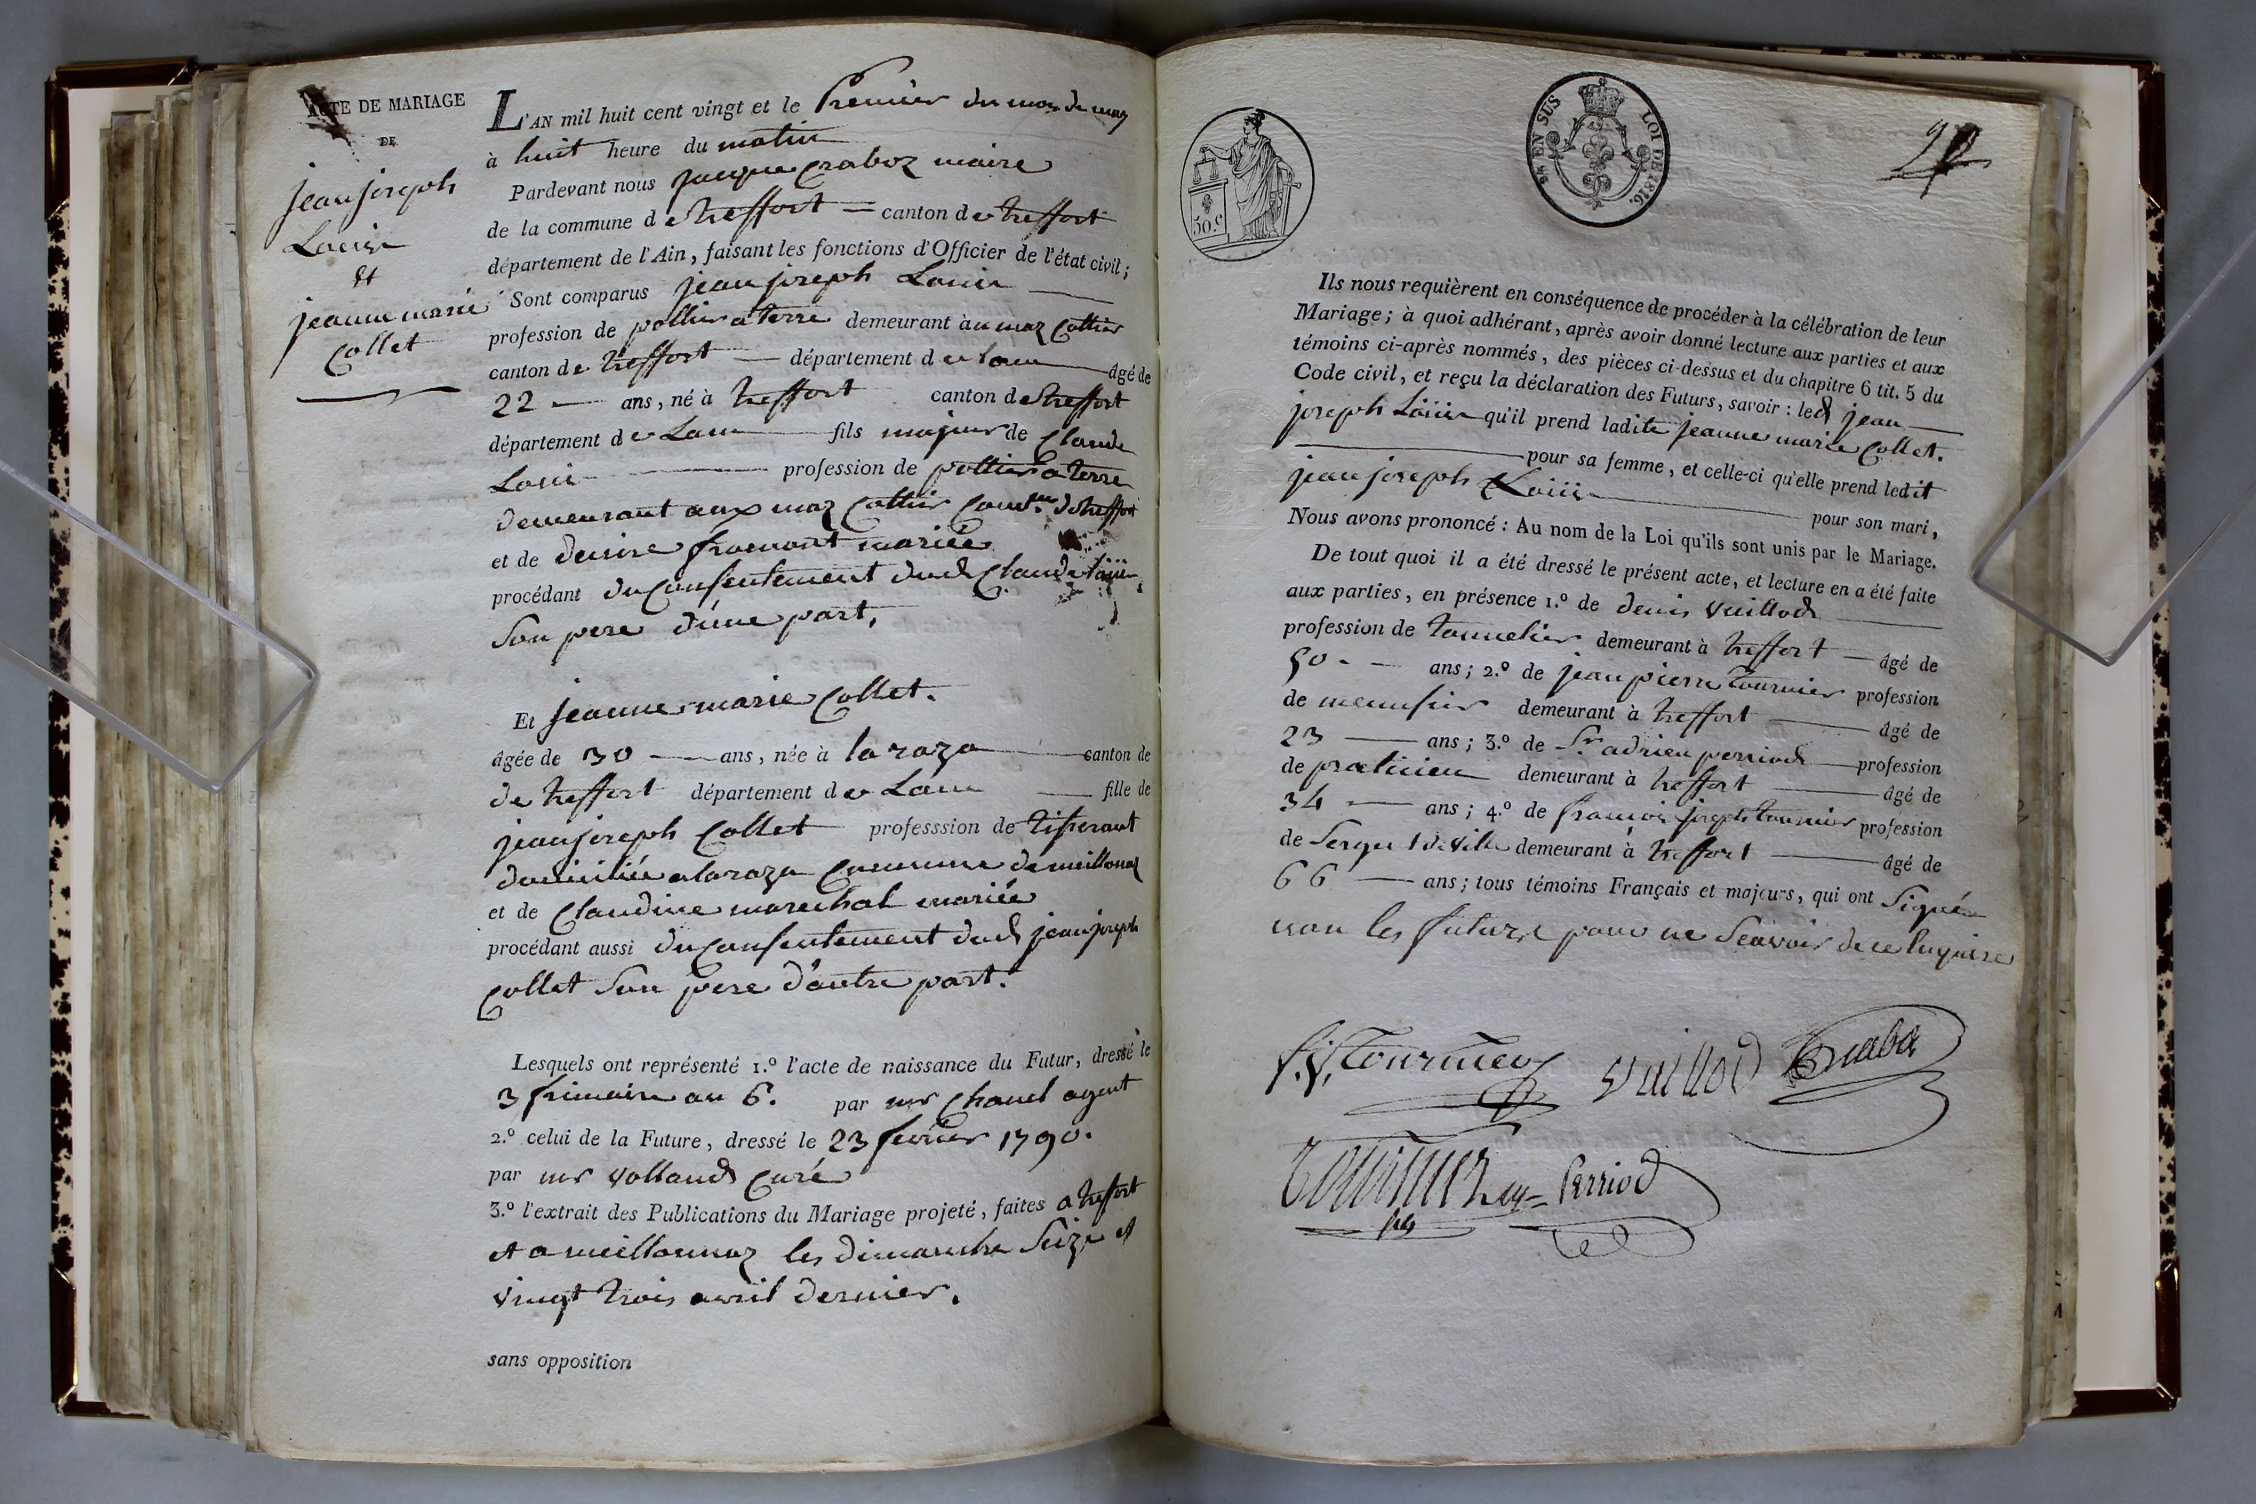 ACTE DE MARIAGE
DE
jean joseph
Louis
et
jeanne marie
Collet
L'AN mil huit cent vingt et le Premier du mois de may
à huit heure du matin
Pardevant nous jacque Craboz maire
de la commune de treffort canton de treffort
département de l'Ain, faisant les fonctions d'Officier de l'état civil;
Sont comparus jean joseph
profession de pottier a terre demeurant au maz Cottier
canton de treffort département de lain âgé de
22 ans, né à treffort canton de treffort
département de Lain fils majeur de Claude
profession de pottier a terre
demeurant aux maz Cottier Comne de treffort
et de denise fromont mariée
procédant du Consentement dud Claude
Son pere d'une part,
Et jeanne marie Collet.
âgée de 30 ans, née à la raza canton de
de treffort département de Lain fille de
jean joseph Collet professsion de tisserant
domiciliée a la raza Commune de meillonaz
et de Claudine marechal mariée
procédant aussi du Consentement dud jean joseph
Collet Son pere d'autre part.
Lesquels ont représenté 1.º l'acte de naissance du Futur, dressé le
3 frimaire an 6. par mr Chanel agent
2.º celui de la Future, dressé le 23 fevrier 1790.
par mr volland Curé
3.º l'extrait des Publications du Mariage projeté, faites a treffort
et a meillonnaz les dimanche Seize et
vingt trois avril dernier.
sans opposition
50 c
EN SUS LOI DE 1816.
Ils nous requièrent en conséquence de procéder à la célébration de leur
Mariage; à quoi adhérant, après avoir donné lecture aux parties et aux
témoins ci-après nommés, des pièces ci-dessus et du chapitre 6 tit. 5 du
Code civil, et reçu la déclaration des Futurs, savoir: led jean
joseph qu'il prend ladite jeanne marie Collet.
pour sa femme, et celle-ci qu'elle prend ledit
jean joseph pour son mari,
Nous avons prononcé: Au nom de la Loi qu'ils sont unis par le Mariage.
De tout quoi il a été dressé le présent acte, et lecture en a été faite
aux parties, en présence 1.º de denis vuillod
profession de tonnelier demeurant à treffort âgé de
50 ans; 2.º de jean pierre tournier profession
de menusier demeurant à treffort âgé de
23 ans; 3.º de Sr adrien perriod profession
de praticien demeurant à treffort âgé de
34 ans; 4.º de francois joseph tournier profession
de Sergent de ville demeurant à treffort âgé de
66 ans; tous témoins Français et majeurs, qui ont Signé
non les futurs pour ne Scavoir de ce Enquise
f. j. tournier vuillod Craboz
tournier Perriod